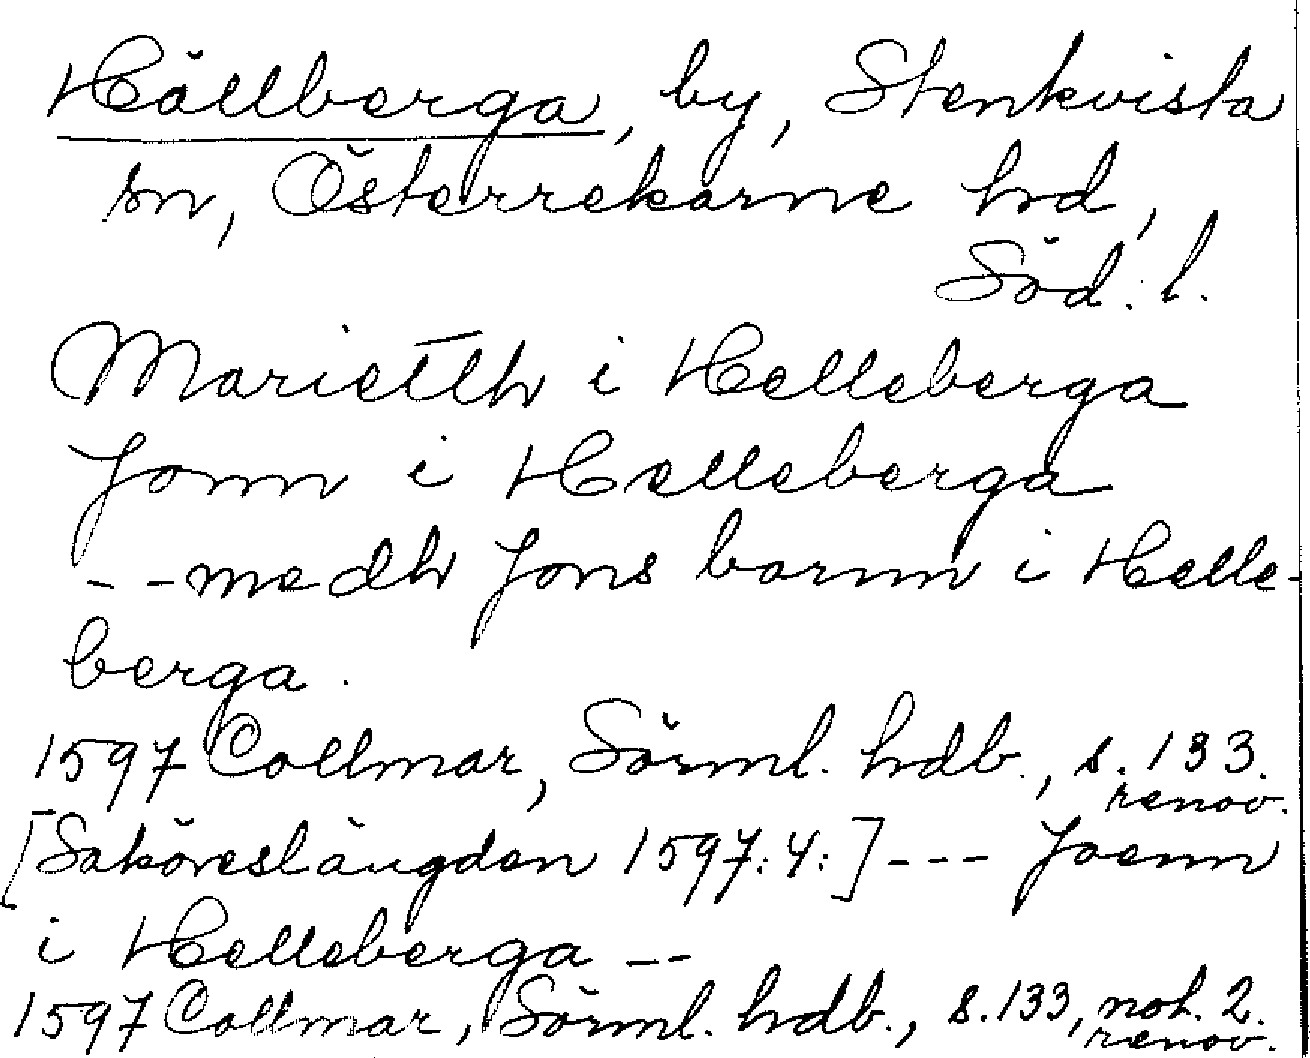 Hällberga, by, Stenkvista
sn, Österrekarne hd,
Söd. l.
Marietth i Helleberga
Jonn i Helleberga
- - medh Jons barnn i Helle-
berga.
1597 Collmar, Sörml. hdb., s. 133.
renov.
[Saköreslängden 1597: 4:] - - - Joenn
i Helleberga - -
1597 Collmar, Sörml. hdb., s. 133, not. 2.
renov.